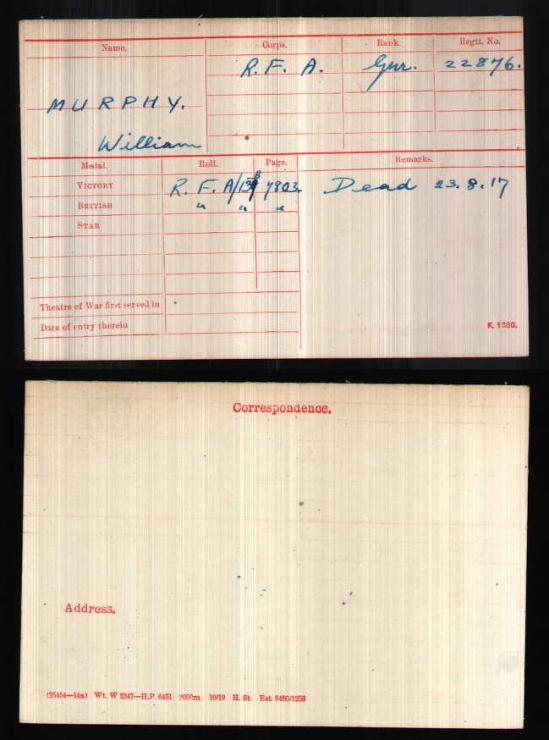 Name. Corps. Rank. Regtl. No.
R. F. A. Gnr. 22876.
MURPHY.
William
Medal. Roll. Page. Remarks.
VICTORY R. F. A/ 7803 Dead 23.8.17
BRITISH " " "
STAR
Theatre of War first served in
Date of entry therein
K. 1380.
Correspondence.
Address.
Wt. W 5347—H.P. 6451 7000m. 10/19 H. St. Est. 6450/1258